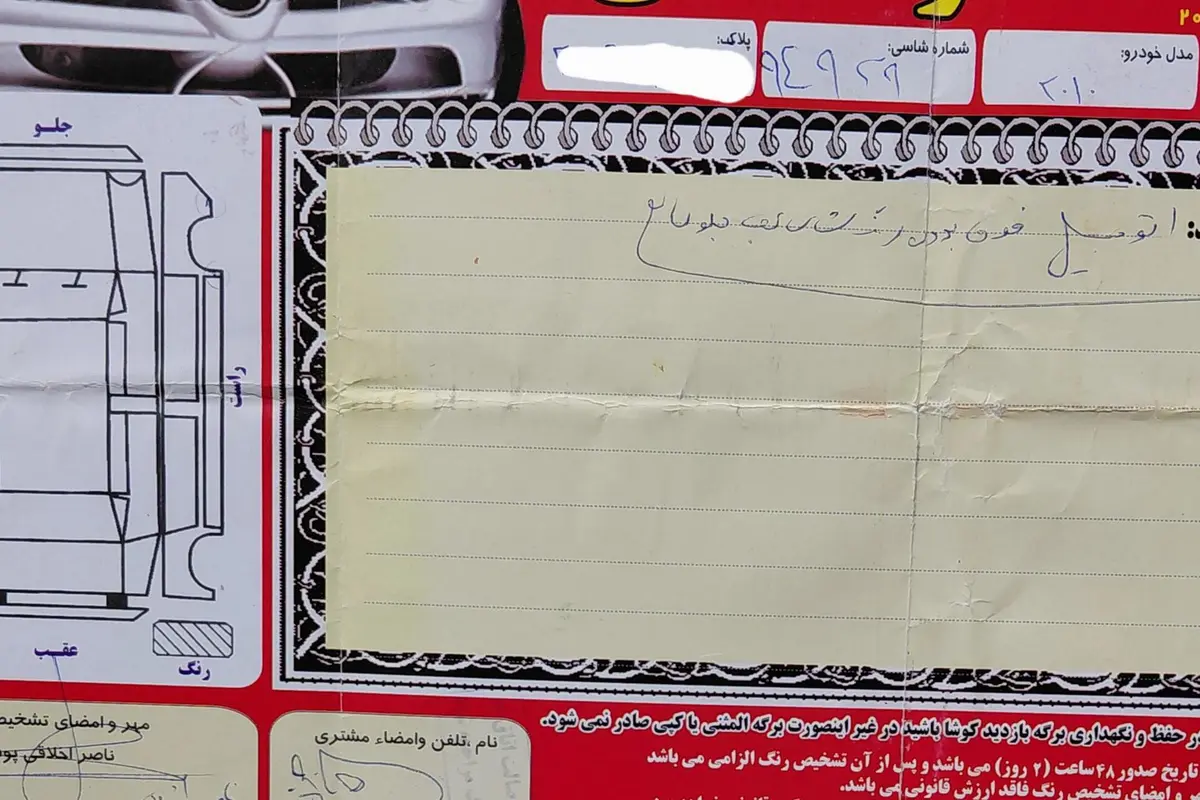 مدل خودرو:
۲۰۱۰
شماره شاسی:
پلاک:
جلـو
اتومبیل فوق بدون رنگ
راست
عقـب
رنگ
در حفظ و نگهداری برگه بازدید کوشا باشید در غیر اینصورت برگه المثنی یا کپی صادر نمی شود.
تاریخ صدور ۴۸ ساعت (۲ روز) می باشد و پس از آن تشخیص رنگ الزامی می باشد
و امضای تشخیص رنگ فاقد ارزش قانونی می باشد.
نام ،تلفن وامضاء مشتری
مهر و امضای تشخیص
ناصر اخلاقی